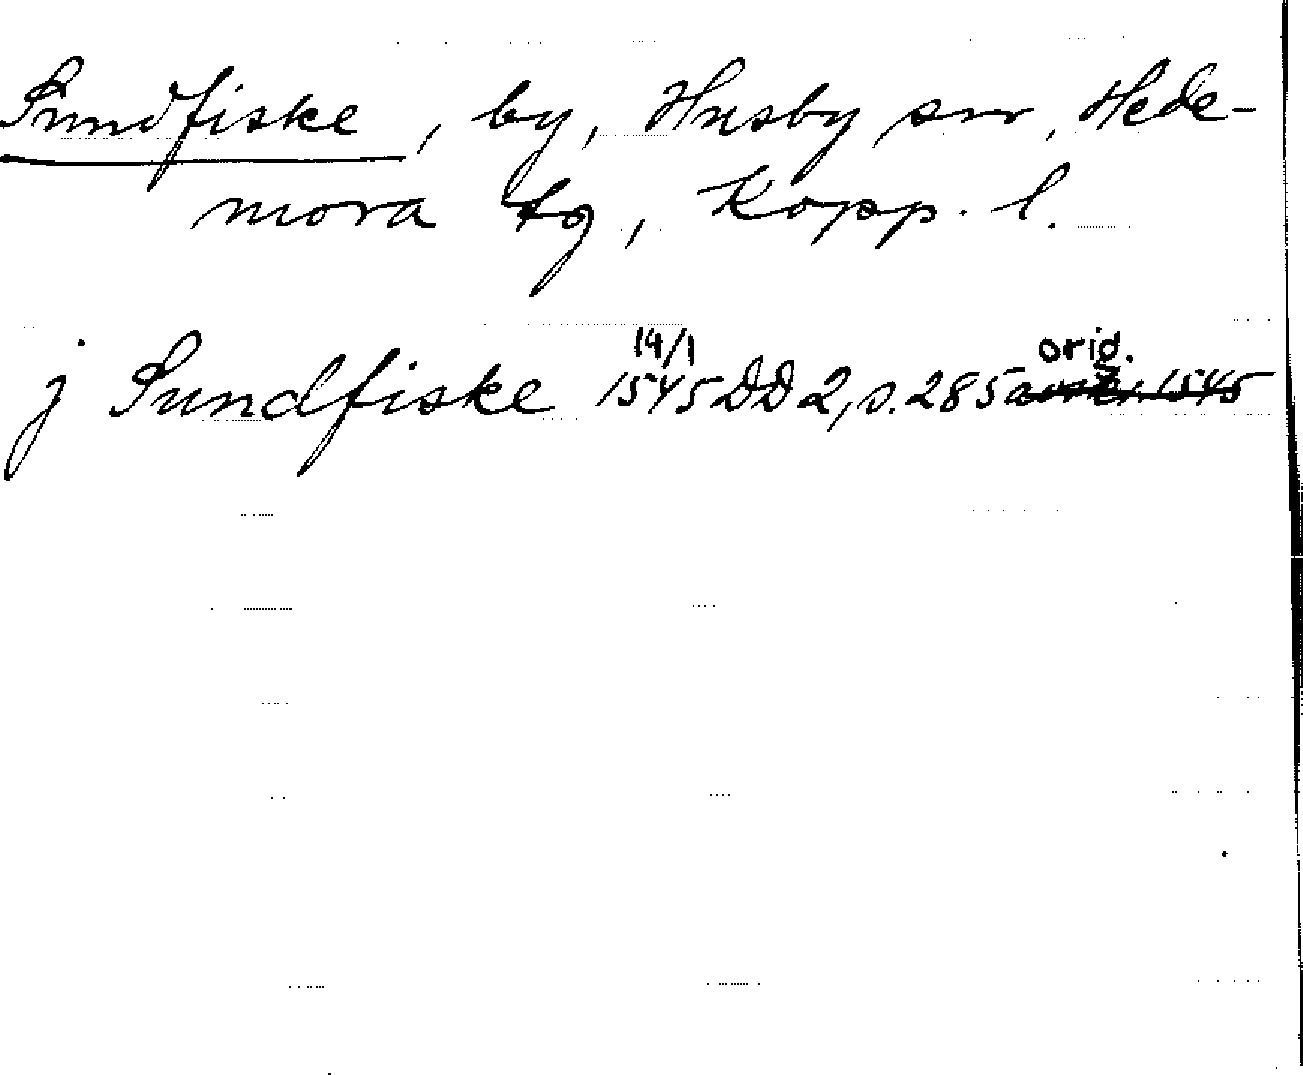 Sundfiske, by, Husby sn, Hede-
mora tg, Kopp. l.
14/1 orig.
j Sundfiske 1545 DD 2, s. 285 1545